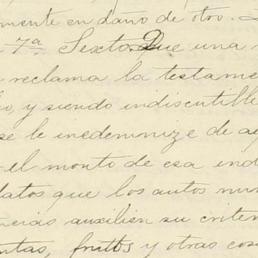 mente en daño de otro.
7ª Sexto. Que una
reclama la testame
lo, y siendo indiscutible
se le indemnize de
el monto de esa ind
datos que los autos
cias auxilien su criter
ntas, frutos y otras cos